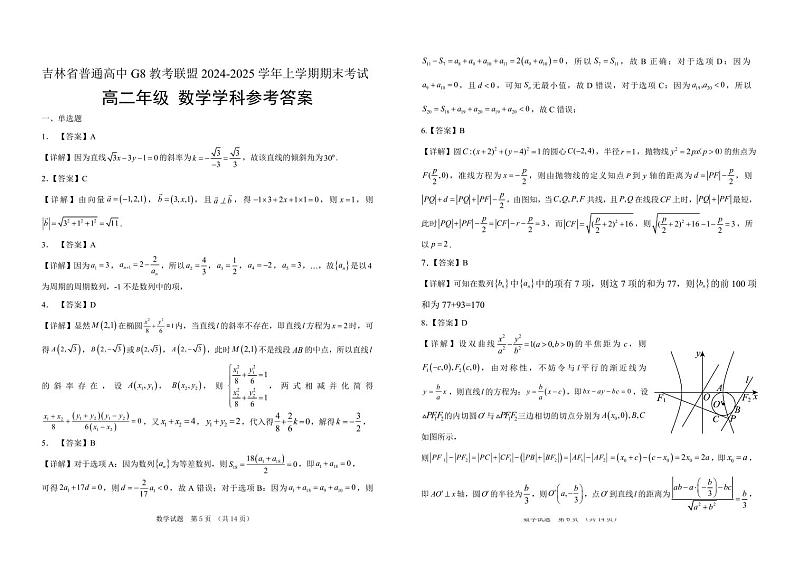 吉林省普通高中 G8 教考联盟 2024-2025 学年上学期期末考试
高二年级 数学学科参考答案
一、单选题
1. 【答案】A
【详解】因为直线 √3x-3y-1=0 的斜率为 k=-√3/-3=√3/3，故该直线的倾斜角为30°.
2.【答案】C
【详解】由向量 a⃗=(-1,2,1)，b⃗=(3,x,1)，且 a⃗⊥b⃗，得 -1×3+2x+1×1=0，则 x=1，则
|b⃗|=√(3²+1²+1²)=√11.
3. 【答案】A
【详解】因为 a₁=3，aₙ₊₁=2-2/aₙ，所以 a₂=4/3，a₃=1/2，a₄=-2，a₅=3，…，故{aₙ}是以4
为周期的周期数列，-1 不是数列中的项，
4. 【答案】D
【详解】显然 M(2,1) 在椭圆 x²/8+y²/6=1 内，当直线 l 的斜率不存在，即直线 l 方程为 x=2 时，可
得 A(2,√3)，B(2,-√3) 或 B(2,√3)，A(2,-√3)，此时 M(2,1) 不是线段 AB 的中点，所以直线 l
的斜率存在，设 A(x₁,y₁)，B(x₂,y₂)，则 {x₁²/8+y₁²/6=1 x₂²/8+y₂²/6=1，两式相减并化简得
(x₁+x₂)/8+(y₁+y₂)(y₁-y₂)/6(x₁-x₂)=0，又 x₁+x₂=4，y₁+y₂=2，代入得 4/8+2/6k=0，解得 k=-3/2，
5. 【答案】B
【详解】对于选项 A：因为数列{aₙ}为等差数列，则 S₁₈=18(a₁+a₁₈)/2=0，即 a₁+a₁₈=0，
可得 2a₁+17d=0，则 d=-2/17a₁<0，故 A 错误；对于选项 B：因为 a₁+a₁₈=a₉+a₁₀=0，则
数学试题 第 5 页 （共 14 页）
S₁₁-S₇=a₈+a₉+a₁₀+a₁₁=2(a₉+a₁₀)=0，所以 S₇=S₁₁，故 B 正确；对于选项 D：因为
a₉+a₁₀=0，且 d<0，可知 Sₙ 无最小值，故 D 错误，对于选项 C：因为 a₁₉,a₂₀<0，所以
S₂₀=S₁₈+a₁₉+a₂₀=a₁₉+a₂₀<0，故 C 错误；
6.【答案】B
【详解】圆 C:(x+2)²+(y-4)²=1 的圆心 C(-2,4)，半径 r=1，抛物线 y²=2px(p>0) 的焦点为
F(p/2,0)，准线方程为 x=-p/2，则由抛物线的定义知点 P 到 y 轴的距离为 d=|PF|-p/2，则
|PQ|+d=|PQ|+|PF|-p/2，由图知，当 C,Q,P,F 共线，且 P,Q 在线段 CF 上时，|PQ|+|PF| 最短，
此时|PQ|+|PF|-p/2=|CF|-r-p/2=3，而|CF|=√((p/2+2)²+16)，则√((p/2+2)²+16)-1-p/2=3，所
以 p=2.
7.【答案】B
【详解】可知在数列{bₙ}中{aₙ}中的项有 7 项，则这 7 项的和为 77，则{bₙ}的前 100 项
和为 77+93=170
8.【答案】D
【详解】设双曲线 x²/a²-y²/b²=1(a>0,b>0) 的半焦距为 c，则
F₁(-c,0),F₂(c,0)，由对称性，不妨令与 l 平行的渐近线为
y=b/a x，则直线 l 的方程为：y=b/a(x-c)，即 bx-ay-bc=0，设
△PF₁F₂ 的内切圆 O′ 与△PF₁F₂ 三边相切的切点分别为 A(x₀,0),B,C
如图所示，
y A l F₁ O′ F₂ x B C P
则|PF₁|-|PF₂|=|PC|+|CF₁|-(|PB|+|BF₂|)=|AF₁|-|AF₂|=(x₀+c)-(c-x₀)=2x₀=2a，即 x₀=a，
即 AO′⊥x 轴，圆 O′ 的半径为 b/3，则 O′(a,-b/3)，点 O′ 到直线 l 的距离为 |ab-a·(-b/3)-bc|/√(a²+b²)=b/3，
数学试题 第 6 页 （共 14 页）